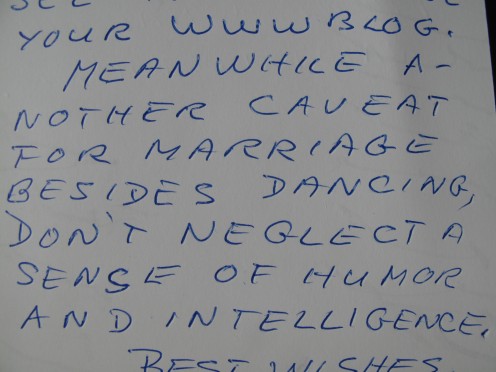 YOUR WWW BLOG.
MEANWHILE A-
NOTHER CAVEAT
FOR MARRIAGE
BESIDES DANCING,
DON'T NEGLECT A
SENSE OF HUMOR
AND INTELLIGENCE.
BEST WISHES